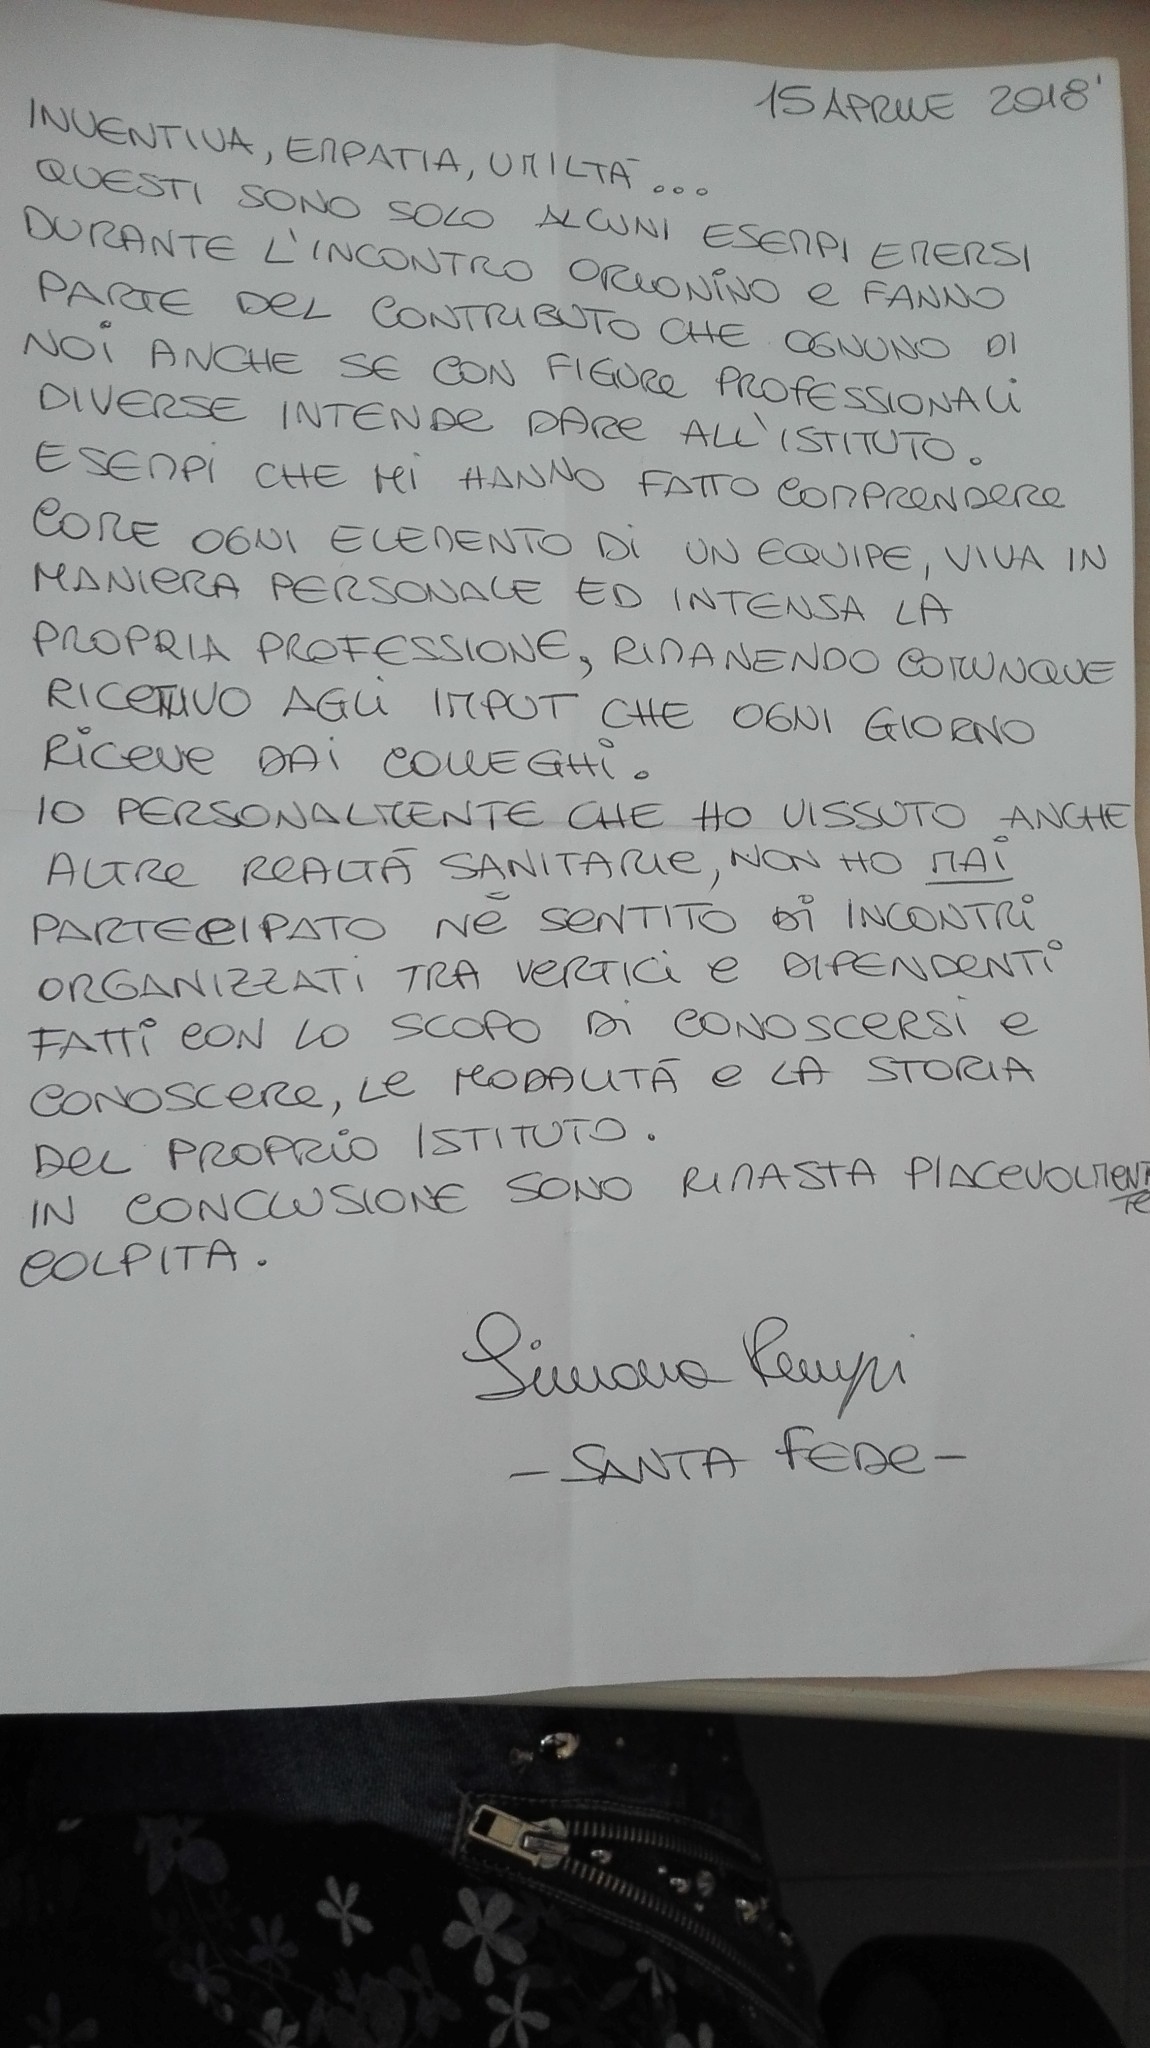 15 APRILE 2018'
INVENTIVA, EMPATIA, UMILTÀ...
QUESTI SONO SOLO ALCUNI ESEMPI EMERSI
DURANTE L'INCONTRO ORIONINO e FANNO
PARTE Del CONTRIBUTO CHE OGNUNO DI
NOi ANCHE SE CON FIGURe PROfESSIONALi
DIVERSE INTENDe DARe ALL'ISTITUTO.
ESEMPi CHE Mi HANNO FATTO COMPRENDERe
COME OGNI ELEMENTO Di UN EQUIPE, VIVA IN
MANIeRA PERSONALE ED INTENSA LA
PROPRIA PROFESSIONE, RIMANENDO COMUNQUE
RICETTIVO AGLi IMPUT CHE OGNI GIORNO
RiCeVe DAi COLLEGHi.
IO PERSONALMENTE CHE HO VISSUTO ANCHE
ALTRe ReALTÀ SANITARIe, NON HO MAi
PARTECIPATO NÈ SENTITO Di INCONTRi
ORGANIZZATi TRA VeRTICi e DIPENDENTi
FATTi CON LO SCOPO Di CONOSCERSi e
CONOSCeRe, Le MODALITÀ e LA STORIA
Del PROPRIO ISTITUTO.
IN CONCLUSIONE SONO RIMASTA PIACEVOLMENTE
COLPITA.
Simona Rempi
- SANTA FEDe -